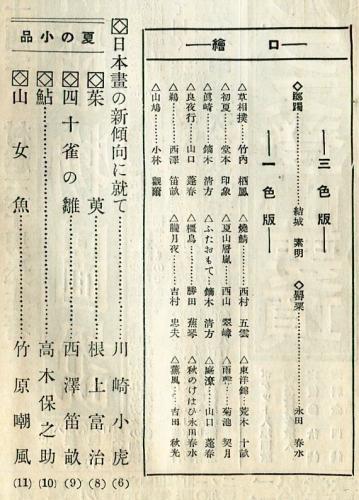 口繪
三色版
◇躑躅……………結城素明
◇罌粟……………永田春水
一色版
△草相撲……竹内栖鳳
△燒鱗……西村五雲
△東洋錦…荒木十畝
△初夏……堂本印象
△夏山層嵐…西山翠嶂
△雨聲……菊池契月
△眞崎……鏑木清方
△ふたおもて…鏑木清方
△庭潦……山口蓬春
△良夜行……山口蓬春
△橿鳥……勝田蕉琴
△秋のけはひ永田春水
△鵜……西澤笛畝
△朧月夜……吉村忠夫
△薫風……吉田秋光
△山鳩……小林觀爾
◇日本畫の新傾向に就て………川崎小虎(6)
夏の小品
◇茱萸………根上富治(8)
◇四十雀の雛………西澤笛畝(9)
◇鮎………高木保之助(10)
◇山女魚………竹原嘲風(11)